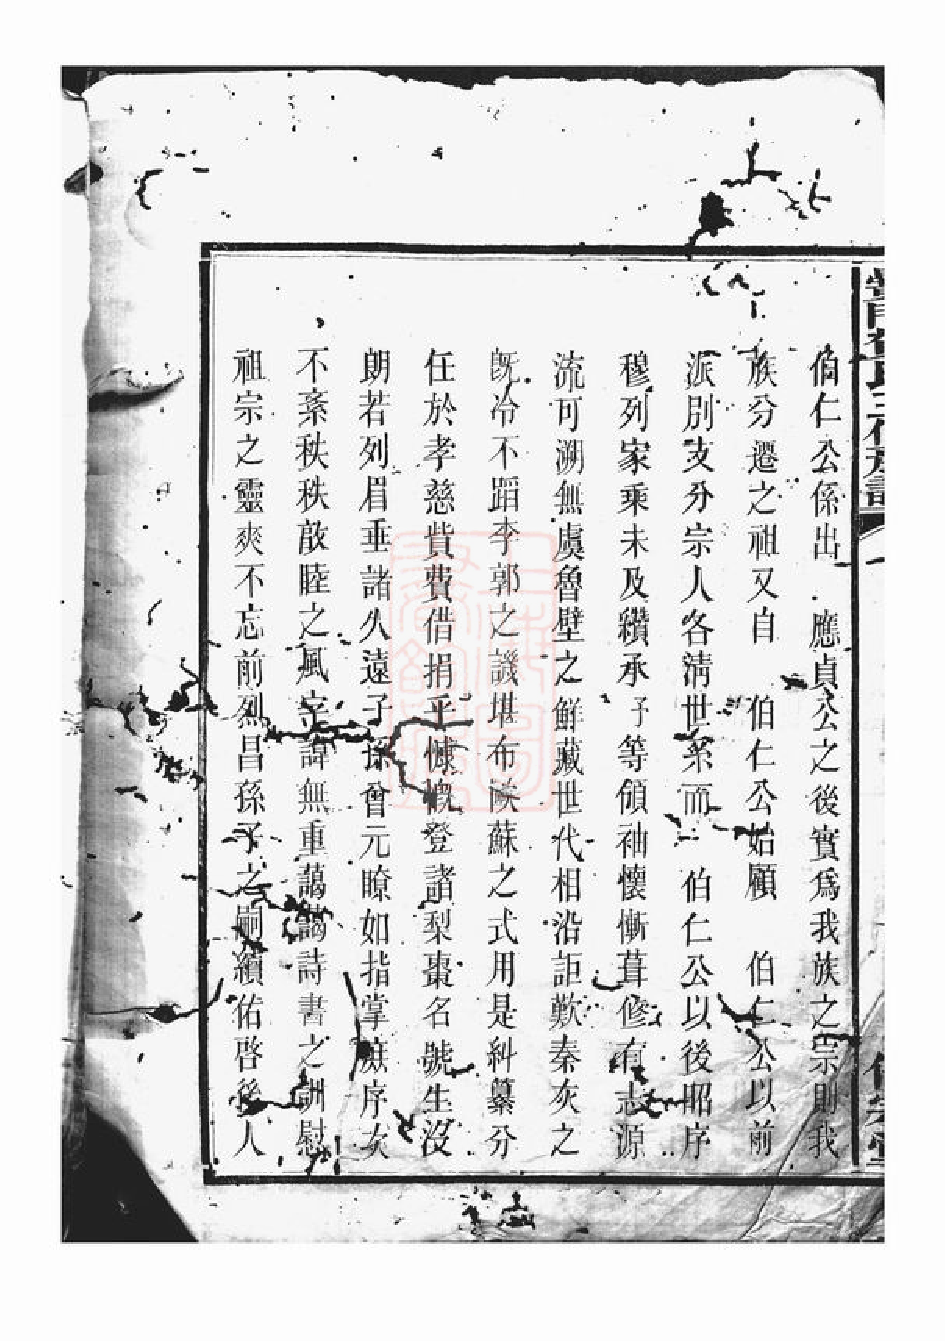 伯仁公係出 應貞公之後實爲我族之宗則我
族分遷之祖又自 伯仁公始顧 伯仁公以前
派別支分宗人各清世系而 伯仁公以後昭序
穆列家乘未及纘承子等領袖懷慚葺修有志源
流可溯無虞魯壁之鮮藏世代相沿詎歎秦灰之
既冷不蹈李郭之譏堪布歐蘇之式用是糾纂分
任於孝慈貲費借捐乎慷慨登諸梨棗名號生沒
朗若列眉垂諸久遠子孫曾元瞭如指掌庶序次
不紊秩秩敵睦之風字諱無重藹藹詩書之訓慰
祖宗之靈爽不忘前烈昌孫子之嗣續佑啓後人